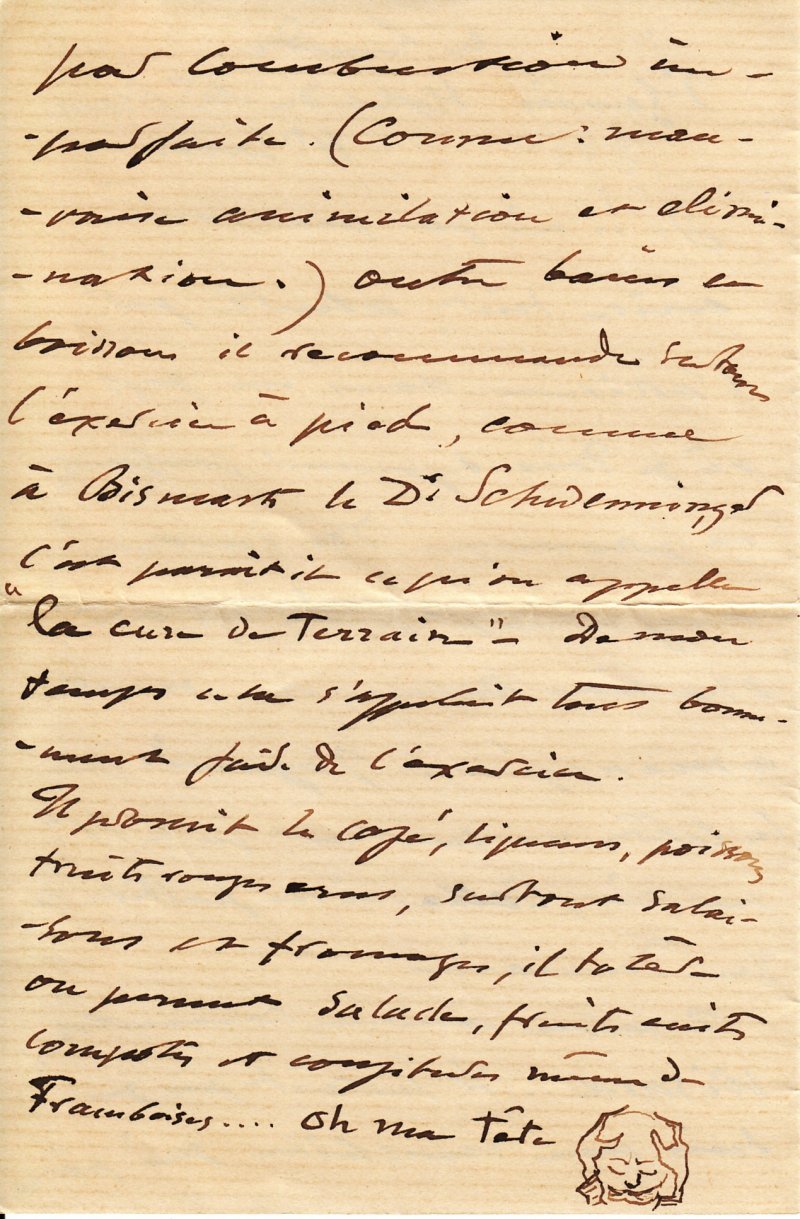 par combustion im-
-parfaite. (Comme: mau-
-vaise assimilation et elimi-
-nation.) outre bains et
boissons il recommande surtout
l'éxercice à pied, comme
à Bismark le Dr Schwenninger
C'est parait il ce qu'on appelle
"la cure de Terrain" - De mon
temps cela s'appelait tout bonne-
-ment faire de l'éxercice.
Il proscrit le café, liqueurs, poissons
fruits rouges crus, surtout salai-
-sons et fromages, il tolère
ou permet salade, fruits cuits
compotes et confitures même de
Framboises.... Oh ma Tête